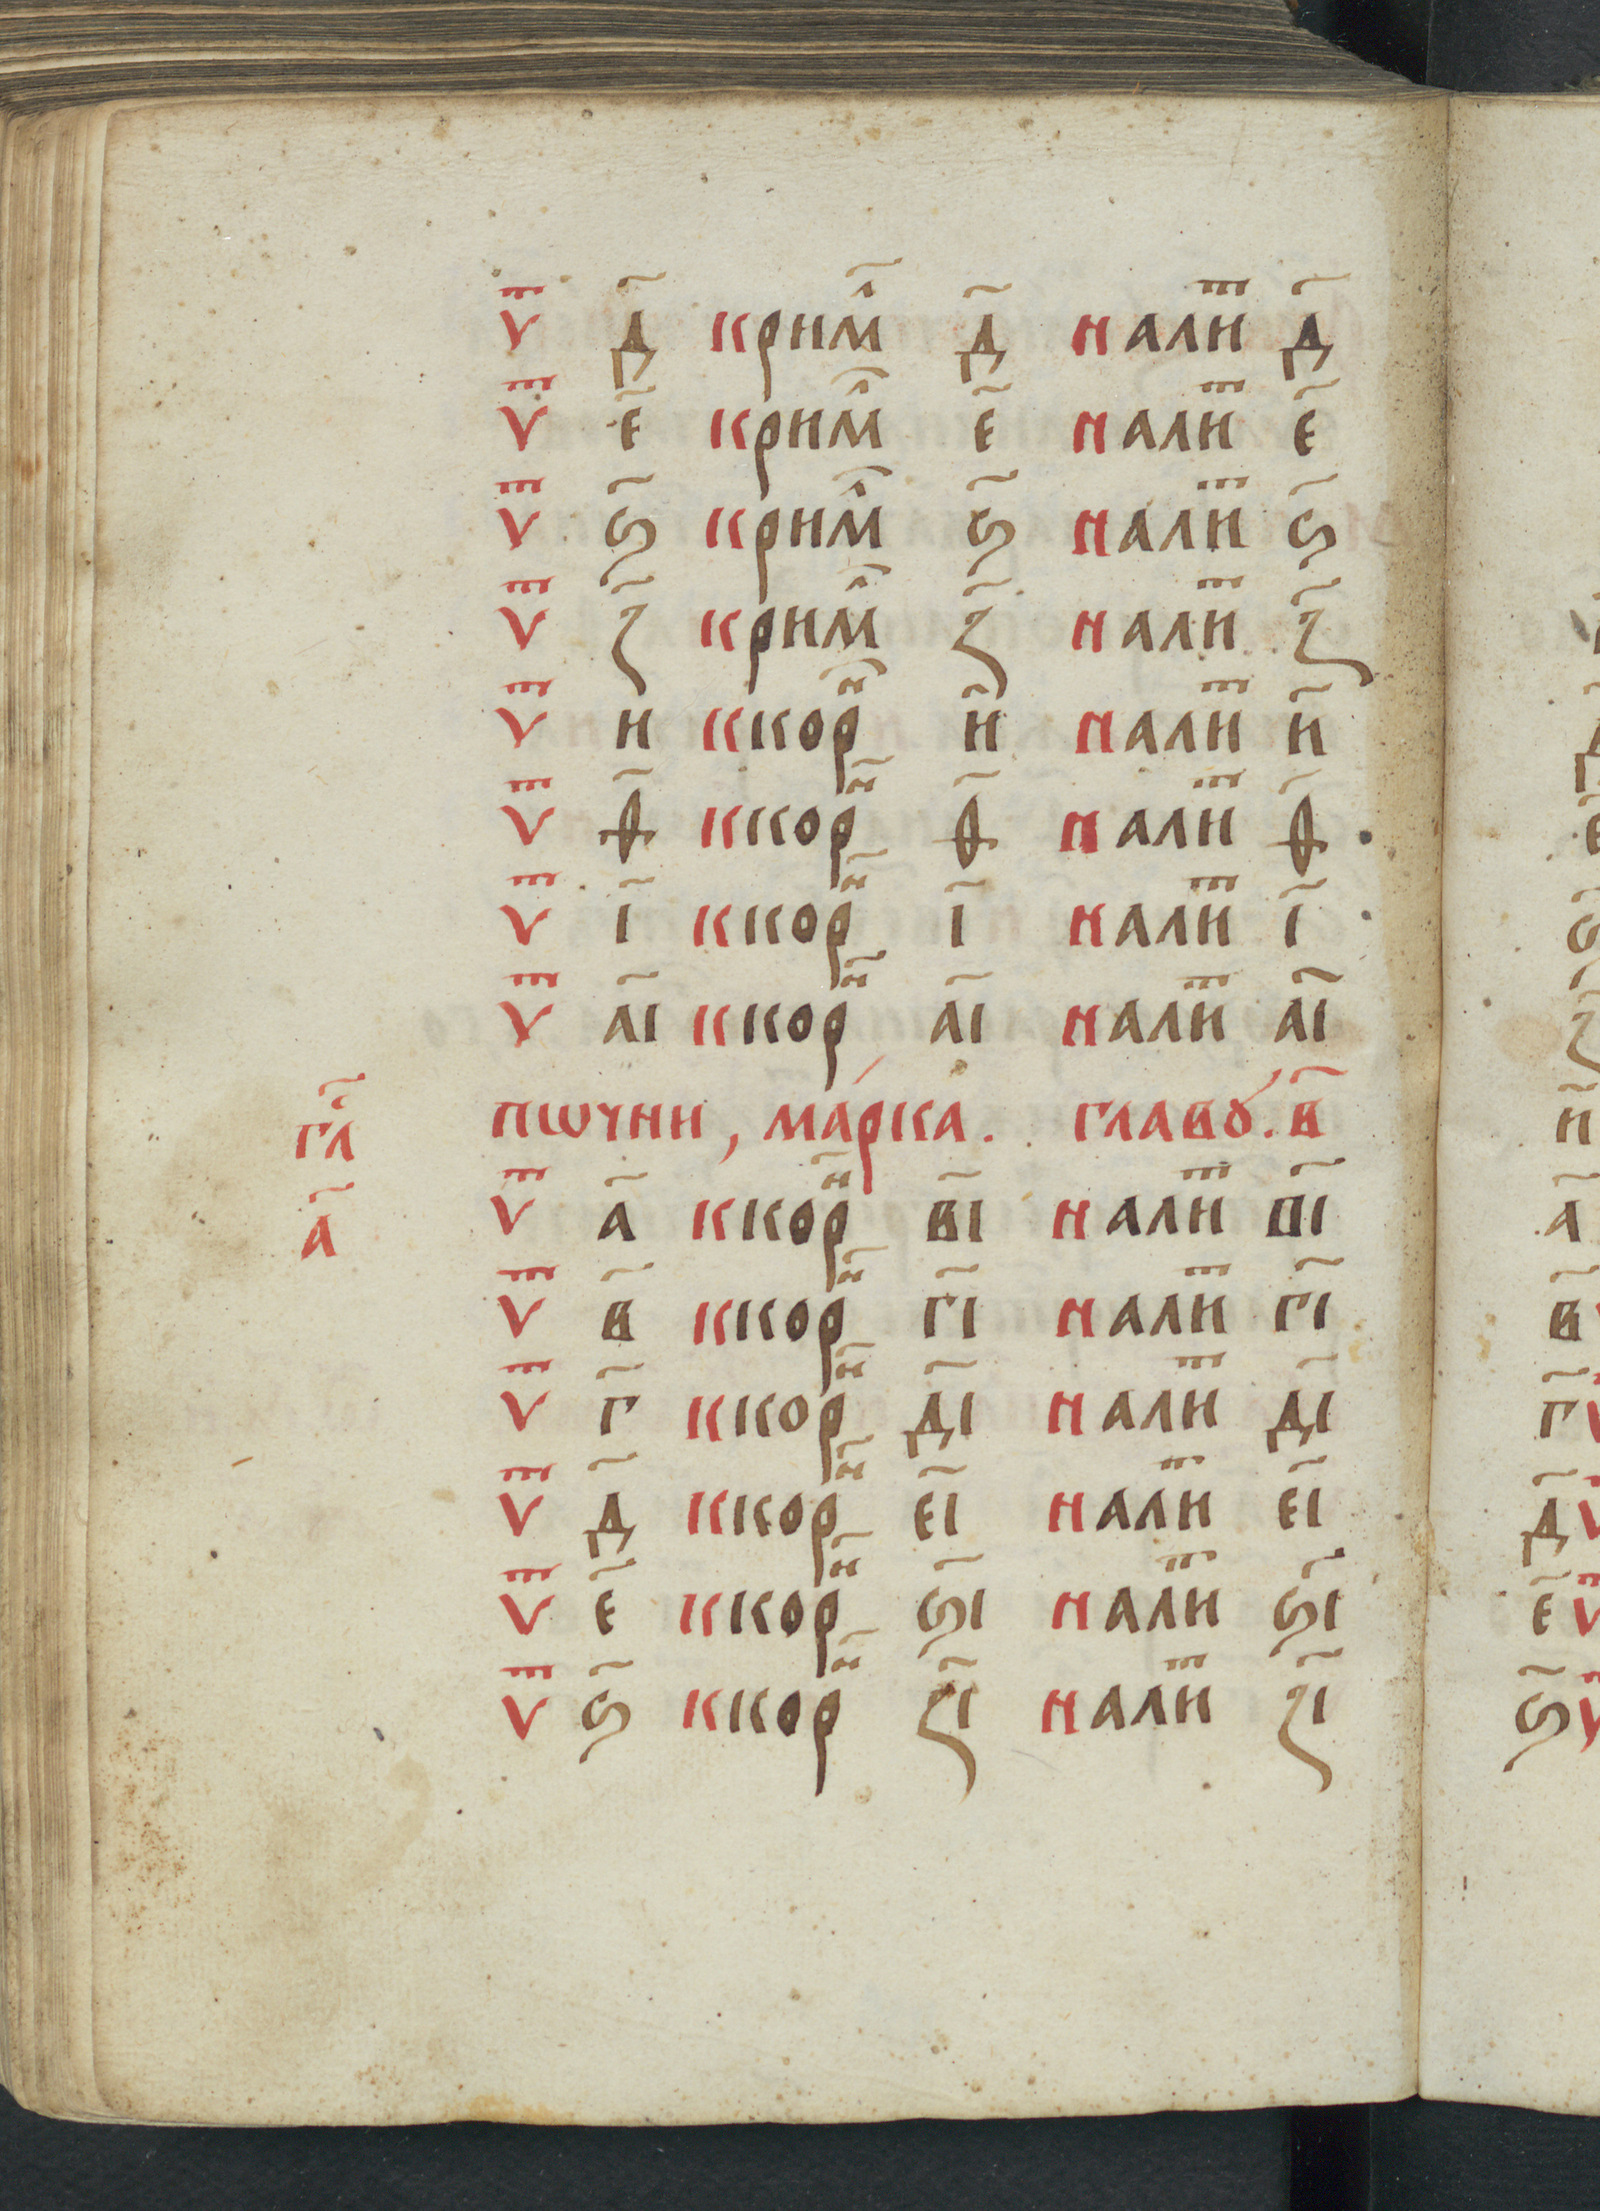 ѵⷮ д҃ кримⷧ҇ д҃ налиⷮ д҃
ѵⷮ е҃ кримⷧ҇ е҃ налиⷮ е҃
ѵⷮ ѕ҃ кримⷧ҇ ѕ҃ налиⷮ ѕ҃
ѵⷮ з҃ кримⷧ҇ з҃ налиⷮ з҃
ѵⷮ и ккорⷩ҇ и҃ налиⷮ и҃
ѵⷮ ѳ҃ ккорⷩ҇ ѳ҃ налиⷮ ѳ҃
ѵⷮ і҃ ккорⷩ҇ і҃ налиⷮ і҃
ѵⷮ аі҃ ккорⷩ҇ аі҃ налиⷮ аі҃
глⷭ҇ пѡчни, ма́рка. главꙋ́. в҃
а҃ ѵⷮ а҃ ккорⷩ҇ ві҃ налиⷮ ві҃
ѵⷮ в҃ ккорⷩ҇ гі҃ налиⷮ гі҃
ѵⷮ г҃ ккорⷩ҇ ді҃ налиⷮ ді҃
ѵⷮ д҃ ккорⷩ҇ еі҃ налиⷮ еі҃
ѵⷮ е҃ ккорⷩ҇ ѕі҃ налиⷮ ѕі҃
ѵⷮ ѕ҃ ккорⷩ҇ зі҃ налиⷮ зі҃